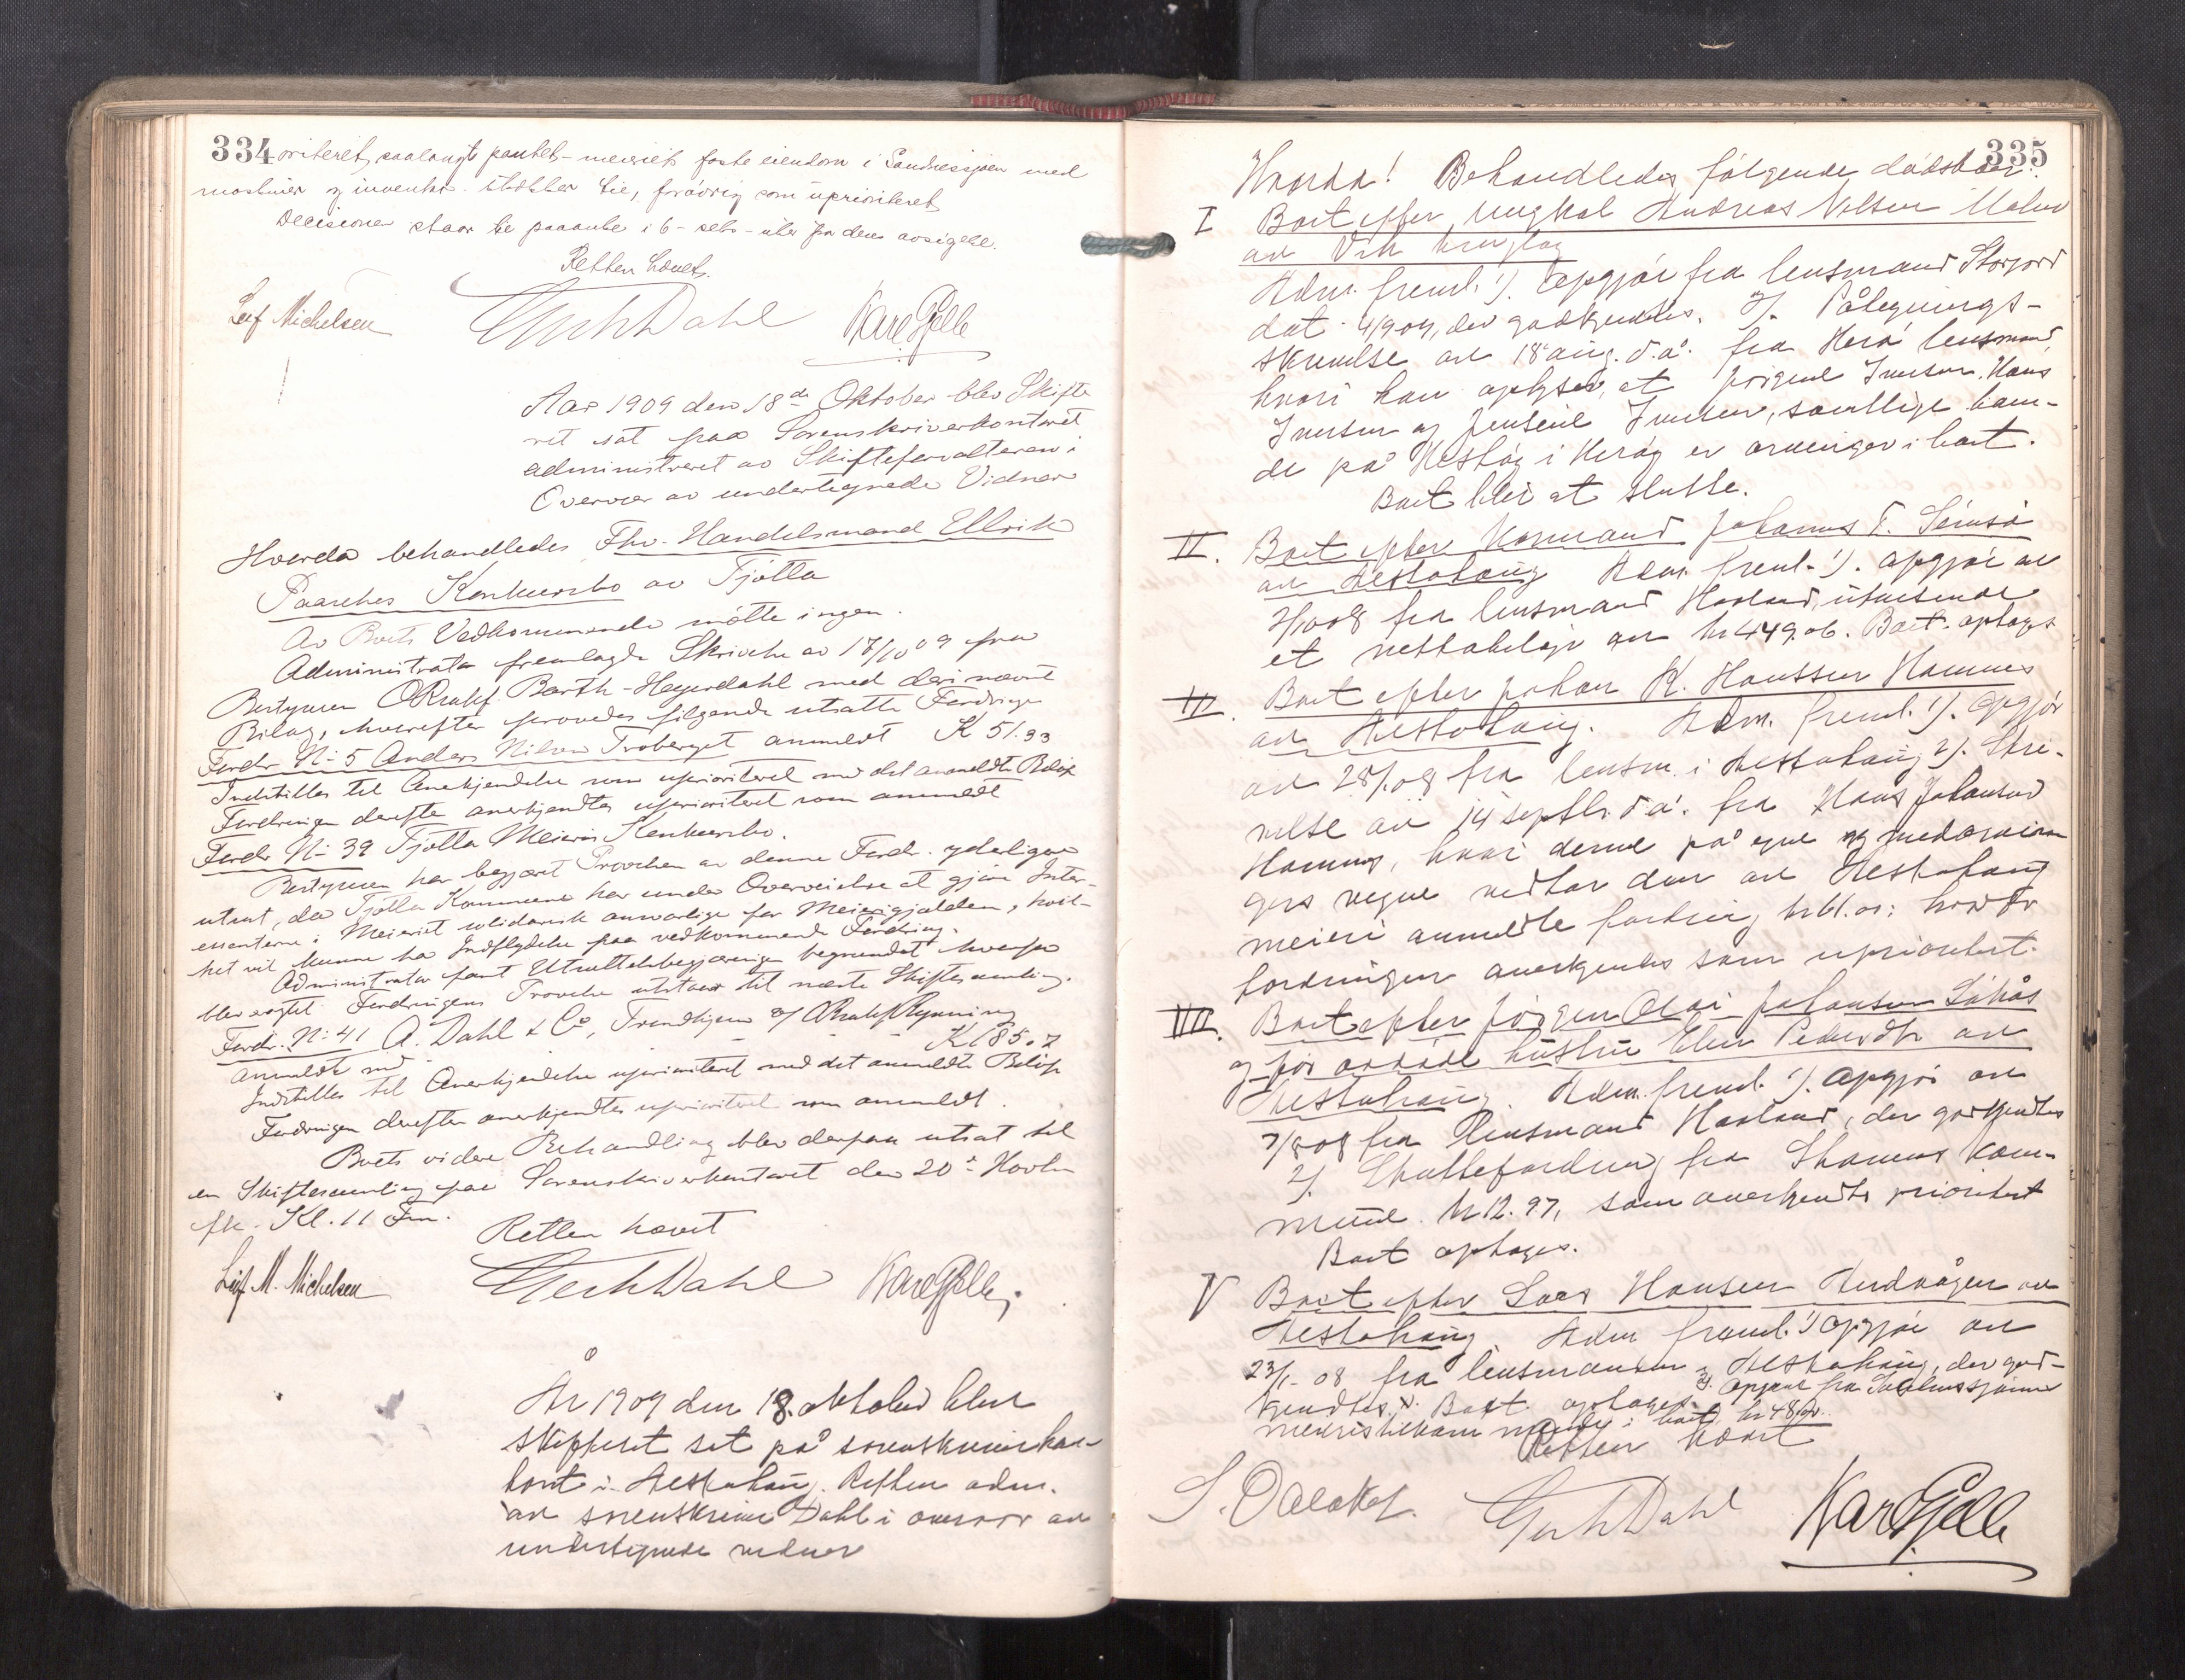 334
oriteret, saalangt pantet - meieriets faste eiendom i Sandnessjøen med
maskiner og inventar strækker til, forøvrig som uprioriteret
Decisionen staar til paaanke i 6 - seks - uker fra dens avsigelse.
Retten hævet.
Leif Michelsen GerhDahl KareGjelle
Aar 1909 den 18de Oktober blev Skifte
ret sat paa Sorenskriverkontoret
administreret av Skifteforvalteren i
Overvær av undertegnede Vidner
Hvorda behandledes Fhv. Handelsmand Ellrik
Paasches Konkursbo av Tjøtta
Av Boets Vedkommende møtte ingen.
Administrator fremlagde Skrivelse av 17/10 09 fra
Bestyreren ORsakf. Barth-Heyerdahl med deri nævnt
Bilag, hvorefter prøvedes følgende utsatte Fordringer
Fordr. No 5 Anders Nilsen Troberget anmeldt K 51.33
Indstilles til Anerkjendelse som uprioriteret med det anmeldte Beløp
Fordringen derefter anerkjendtes uprioriteret som anmeldt
Fordr No 39 Tjøtta Meieris Konkursbo.
Bestyreren har begjært Prøvelsen av denne Fordr. yderligere
utsat, da Tjøtta Kommune har under Overveielse at gjøre Inter-
essenterne i Meieriet solidarisk ansvarlige for Meierigjælden, hvil-
ket vil kunne ha Indflydelse paa vedkommende Fordring.
Administrator fant Utsættelsesbegjæringen begrundet hvorfor
blev avgtet Fordringens Prøvelse utstaar til næste Skiftesamling.
Fordr. No 41 A. Dahl & Co, Trondhjem v/ ORsakf Rynning
anmeldt med K 185.07
Indstilles til Anerkjendelse uprioriteret med det anmeldte Beløp
Fordringen derefter anerkjendtes uprioriteret som anmeldt.
Boets videre Behandling blev derpaa utsat til
en Skiftesamling paa Sorenskriverkontoret den 20de Novbr
fk. Kl. 11 Fm.
Retten hævet
Leif M. Michelsen GerhDahl KareGjelle
År 1909 den 18. oktober blev
skifteret sat på sorenskriverkon-
toret i Alstahaug. Retten adm.
av sorenskriver Dahl i overvær av
undertegnede vidner
335
Hvorda! Behandledes følgende dødsboer:
I Boet efter ungkal Andreas Nilsen
av Vik
Adm. freml. 1). Opgjør fra lensmand Storjord
dat. 4/9 09, der godkjendtes. 2). Pålegnings-
skrivelse av 18 aug. d.å. fra Herø lensmand,
hvori han oplyser, at Jørgine Iversen, Hans
Iversen og Jensine Iversen, samtlige boen-
de på i Herøy er arvinger i boet.
Boet blir at slutte.
II. Boet efter Johannes
av Alstahaug Adm. freml. 1). Opgjør av
fra lensmand Havland, utvisende
et nettobeløp av kr 449.06. Boet optages
III. Boet efter Johan K. Hanssen Hamnes
av Alstahaug. Adm. freml. 1). Opgjør
av fra lensm. i Alstahaug 2). Skri-
velse av 14 septbr. d.å. fra Hans Johansen
Hamnes, hvori denne på egne og medarvin
gers vegne vedtar den av Alstahaug
meieri anmeldte fordring kr 61.01; hvorfor
fordringen anerkjendes som uprioritert.
IIII. Boet efter Jørgen Olai Johansen
og før avdøde hustru Elen Pedersdtr av
Alstahaug. Adm. freml. 1). Opgjør av
7/8 08 fra lensmand Havland, der godkjendtes
2). Skattefordring fra Stamnes kom-
mune. kr 12.97, som anerkjendtes prioritert
Boet optages.
V Boet efter Lars Hansen av
Alstahaug. Adm freml. 1) Opgjør av
23/1- 08 fra lensmanden i Alstahaug, der god-
kjendtes. Boet optages. 2). Opgave fra
meieris i boet kr 48
Retten hævet
GerhDahl KareGjelle